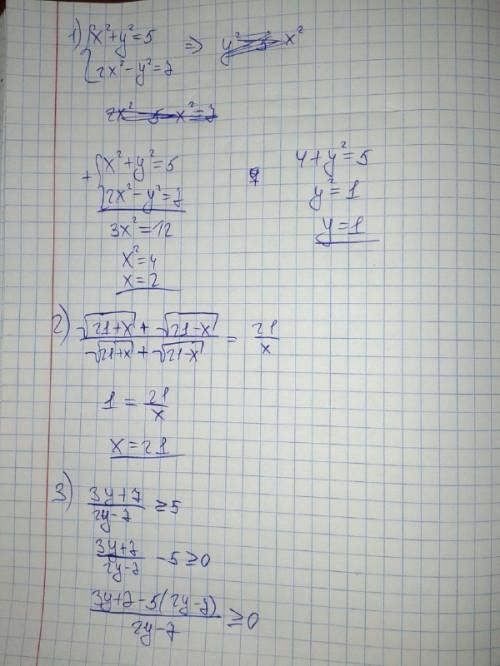 1) { x²+y²=5 ⇒
2x²-y²=7
+ { x²+y²=5
2x²-y²=7
3x²=12
x²=4
x=2
4+y²=5
y²=1
y=1
2) (√(21+x) + √(21-x))/(√(21+x) + √(21-x)) = 21/x
1 = 21/x
x=21
3) (3y+7)/(2y-7) ≥5
(3y+7)/(2y-7) -5≥0
(3y+7-5(2y-7))/(2y-7) ≥0